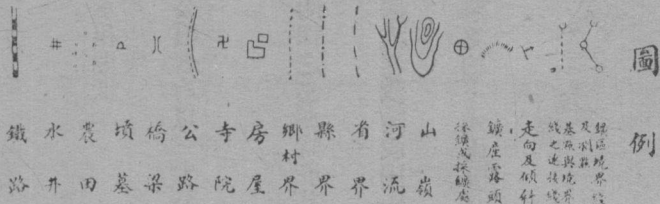 圖例
鑛區境界線
及測點
基點與境界
線之連接線
走向及傾斜
鑛産露頭
採鑛或探鑛處
山嶺
河流
省界
縣界
鄉村界
房屋
寺院
公路
橋梁
墳墓
農田
水井
鐵路